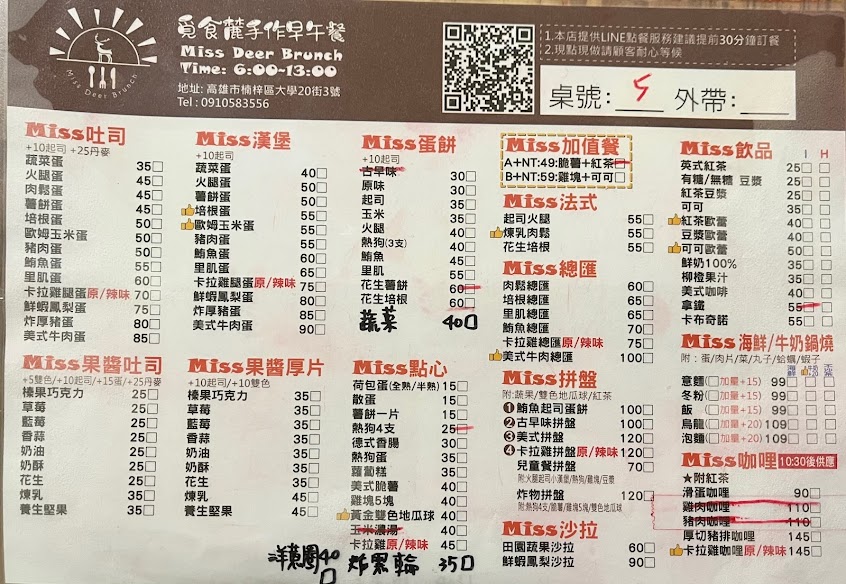 覓食麓手作早午餐
Miss Deer Brunch
Time: 6:00~13:00
地址: 高雄市楠梓區大學20街3號
Tel : 0910583556
Miss Deer Brunch
1.本店提供LINE點餐服務建議提前30分鐘訂餐
2.現點現做請顧客耐心等候
桌號: 5 外帶:
Miss吐司
+10起司 +25丹麥
蔬菜蛋 35
火腿蛋 45
肉鬆蛋 45
薯餅蛋 45
培根蛋 50
歐姆玉米蛋 50
豬肉蛋 50
鮪魚蛋 55
里肌蛋 55
卡拉雞腿蛋原/辣味 70
鮮蝦鳳梨蛋 75
炸厚豬蛋 80
美式牛肉蛋 85
Miss漢堡
+10起司
蔬菜蛋 40
火腿蛋 50
薯餅蛋 50
培根蛋 55
歐姆玉米蛋 55
豬肉蛋 55
鮪魚蛋 60
里肌蛋 65
卡拉雞腿蛋原/辣味 75
鮮蝦鳳梨蛋 80
炸厚豬蛋 85
美式牛肉蛋 90
Miss蛋餅
+10起司
古早味 30
原味 30
起司 35
玉米 35
火腿 40
熱狗(3支) 40
鮪魚 45
里肌 55
花生薯餅 60
花生培根 60
蔬菜 40
Miss加值餐
A+NT:49:脆薯+紅茶
B+NT:59:雞塊+可可
Miss法式
起司火腿 55
煉乳肉鬆 55
花生培根 55
Miss總匯
肉鬆總匯 60
培根總匯 65
里肌總匯 65
鮪魚總匯 70
卡拉雞總匯原/辣味 75
美式牛肉總匯 100
Miss拼盤
附:蔬果/雙色地瓜球/紅茶
1 鮪魚起司蛋餅 100
2 古早味拼盤 100
3 美式拼盤 120
4 卡拉雞拼盤原/辣味 120
兒童餐拼盤 70
附:火腿起司小漢堡/熱狗/雞塊/豆漿
炸物拼盤 120
附:熱狗4支/脆薯/雞塊5塊/雙色地瓜球
Miss沙拉
田園蔬果沙拉 60
鮮蝦鳳梨沙拉 90
Miss飲品
I H
英式紅茶 25
有糖/無糖 豆漿 25
紅茶豆漿 25
可可 35
紅茶歐蕾 35
豆漿歐蕾 40
可可歐蕾 50
鮮奶100% 35
柳橙果汁 35
美式咖啡 40
拿鐵 55
卡布奇諾 55
Miss海鮮/牛奶鍋燒
附 : 蛋/肉片/菜/丸子/蛤蠣/蝦子
意麵(加量+15) 99
冬粉(加量+15) 99
飯(加量+15) 99
烏龍(加量+20) 109
泡麵(加量+20) 109
Miss咖哩 10:30後供應
★附紅茶
滑蛋咖哩 90
雞肉咖哩 110
豬肉咖哩 110
厚切豬排咖哩 145
卡拉雞咖哩原/辣味 145
Miss果醬吐司
+5雙色/+10起司/+15蛋/+25丹麥
榛果巧克力 25
草莓 25
藍莓 25
香蒜 25
奶油 25
奶酥 25
花生 25
煉乳 35
養生堅果 35
Miss果醬厚片
+10起司/+10雙色
榛果巧克力 35
草莓 35
藍莓 35
香蒜 35
奶油 35
奶酥 35
花生 35
煉乳 45
養生堅果 45
Miss點心
荷包蛋(全熟/半熟) 15
散蛋 15
薯餅一片 15
熱狗4支 25
德式香腸 30
熱狗蛋 35
蘿蔔糕 35
美式脆薯 40
雞塊5塊 40
黃金雙色地瓜球 40
玉米濃湯
卡拉雞腿原/辣味 45
洋蔥圈40 炸黑輪 35